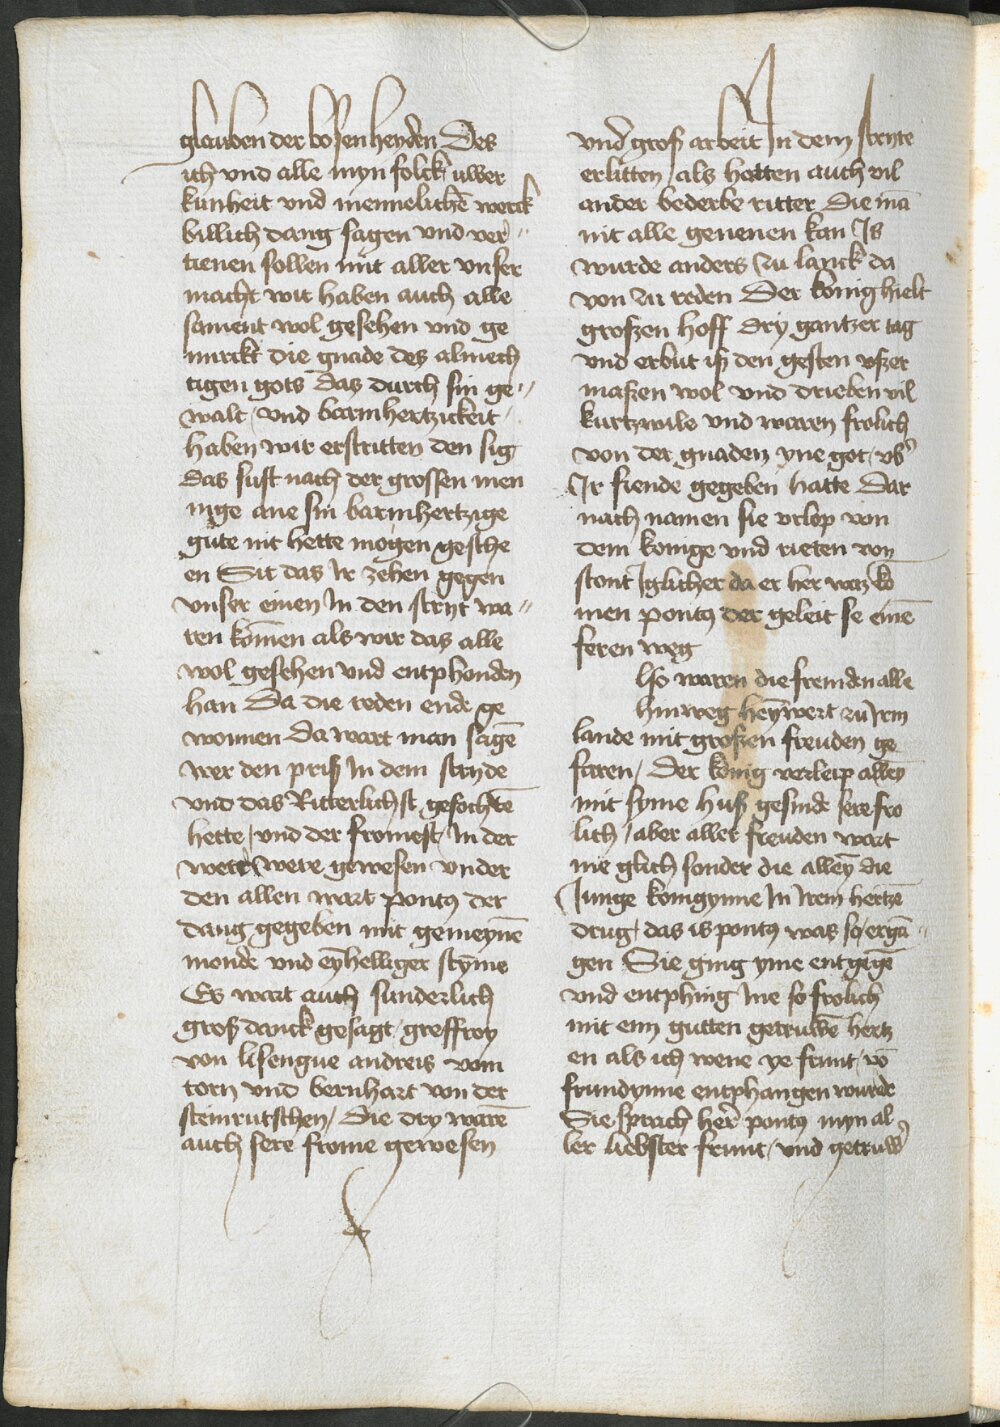 glauben der bosen heyden Des
ich vnd alle myn folck uwer
kunheit vnd mennelichē werck
billich dang sagen vnd ver-
tienen sollen mit aller vnser
macht wir haben auch alle
sament wol gesehen vnd ge
mirckt die gnade des almech
tigen gots das durch sin ge-
walt / vnd barmhertzickeit
haben wir erstritten den sig
das sust nach der grossen men
nige ane sin barmhertzige
gute nit hette mogen gesche
en Sit das Ir zehen gegen
vnser einen In den stryt wa-
ren kōmen als wir das alle
wol gesehen vnd entphonden
han Da die reden ende ge
wonnen Da wart man sagē
wer den priß In dem stryde
vnd das Ritterlichst gefochtē
hette / vnd der fromest / In der
were were gewesen vnder
den allen wart pontus der
dang gegeben mit gemeynē
monde vnd eyhelliger styme
Es wart auch sunderlich
groß danck gesagt / greffroy
von lisengue andreis vom
torn vnd bernhart von der
steinrutschen / Die dry warē
auch sere frome gewesen
vnd groß arbeit In dem stryte
erlitten / als hatten auch vil
ander bederbe ritter Die mā
nit alle genenen kan Is
wurde anders zu lanck da
von zu reden Der konig hielt
großen hoff dry gantzer tag
vnd erbut iß den gesten vßer
maßen wol vnd drieben vil
kurtzwile vnd waren frolich
von der gnaden yne got vbˀ
Ir fiende gegeben hatte Dar
nach namen sie vrlop von
dem konige vnd rieten von
stont Iglicher da er her waz kō
men pontus der geleit se einē
feren weg
lso waren die fremden alle
hinweg heymwert zu Irm
lande mit großen freuden ge
faren / Der konig verleip alleyn
mit syme huß gesinde sere fro
lich / aber aller freuden wart
nie glich sonder die alleyn die
Junge konigynne In Irem hertzē
drug / das is pontus was so ergā-
gen Sie ging yme entgegē
vnd entphing Ine so frolich
mit eim gutten getruwē hertz
en als ich wene ye frunt / vō
frundynne entphangen wurde
Sie sprach her pontus myn al
ler liebster frunt / vnd getruwˀ